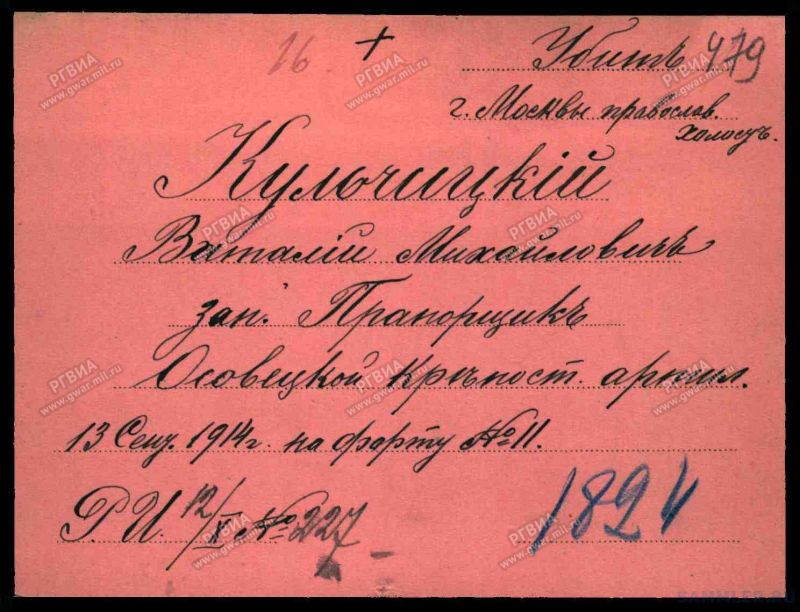 16 + Убитъ 479
г. Москвы православ.
холостъ.
Кульчицкій
Виталій Михайловичъ
зап. Прапорщикъ
Осовецкой Крѣпост. артил.
13 Сент. 1914 г. на форту № II.
Р. И. 12/X № 227
1824
РГВИА
www.gwar.mil.ru
SAMMLER.RU